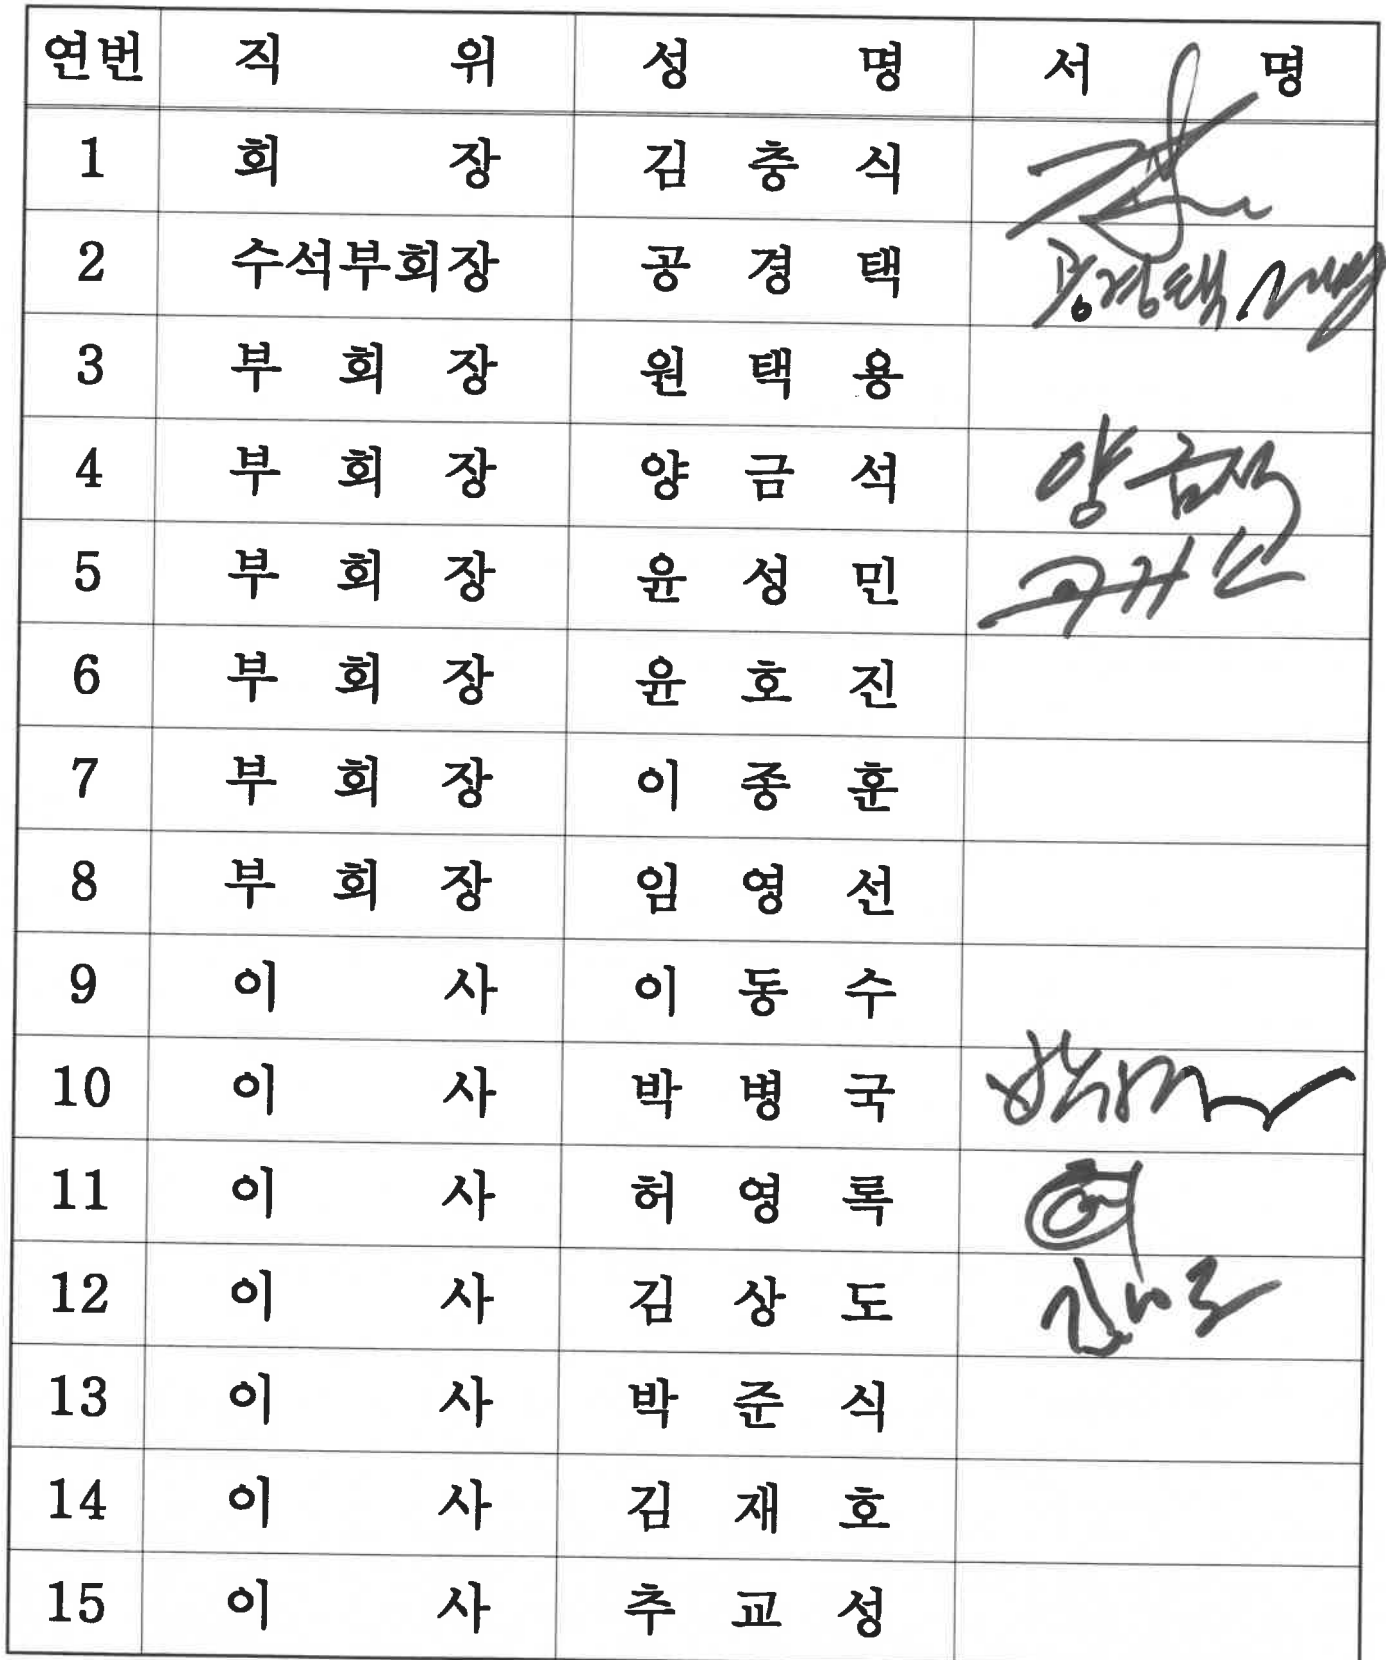 연번 직 위 성 명 서 명
1 회 장 김 충 식
2 수석부회장 공 경 택 공경택
3 부 회 장 원 택 용
4 부 회 장 양 금 석 양금석
5 부 회 장 윤 성 민
6 부 회 장 윤 호 진
7 부 회 장 이 종 훈
8 부 회 장 임 영 선
9 이 사 이 동 수
10 이 사 박 병 국
11 이 사 허 영 록
12 이 사 김 상 도
13 이 사 박 준 식
14 이 사 김 재 호
15 이 사 추 교 성